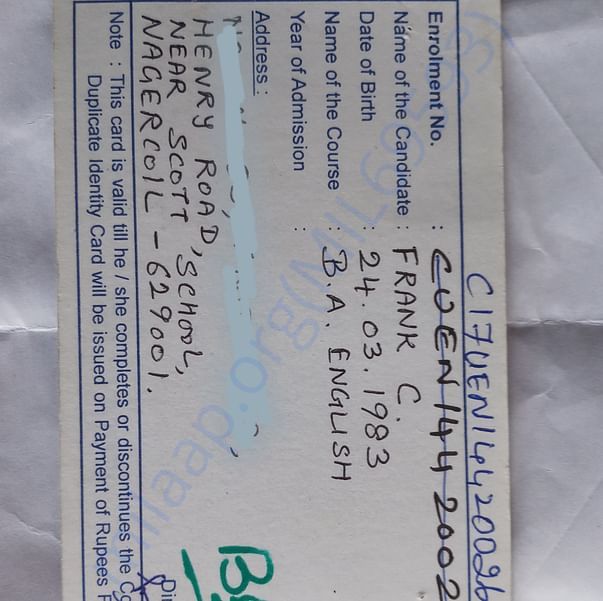 C17UEN14420026
Enrolment No. : CUEN1442002
Name of the Candidate : FRANK C.
Date of Birth : 24.03.1983
Name of the Course : B.A. ENGLISH
Year of Admission :
Address :
HENRY ROAD,
NEAR SCOTT SCHOOL,
NAGERCOIL - 629001.
Note : This card is valid till he / she completes or discontinues the
Duplicate Identity Card will be issued on Payment of Rupees